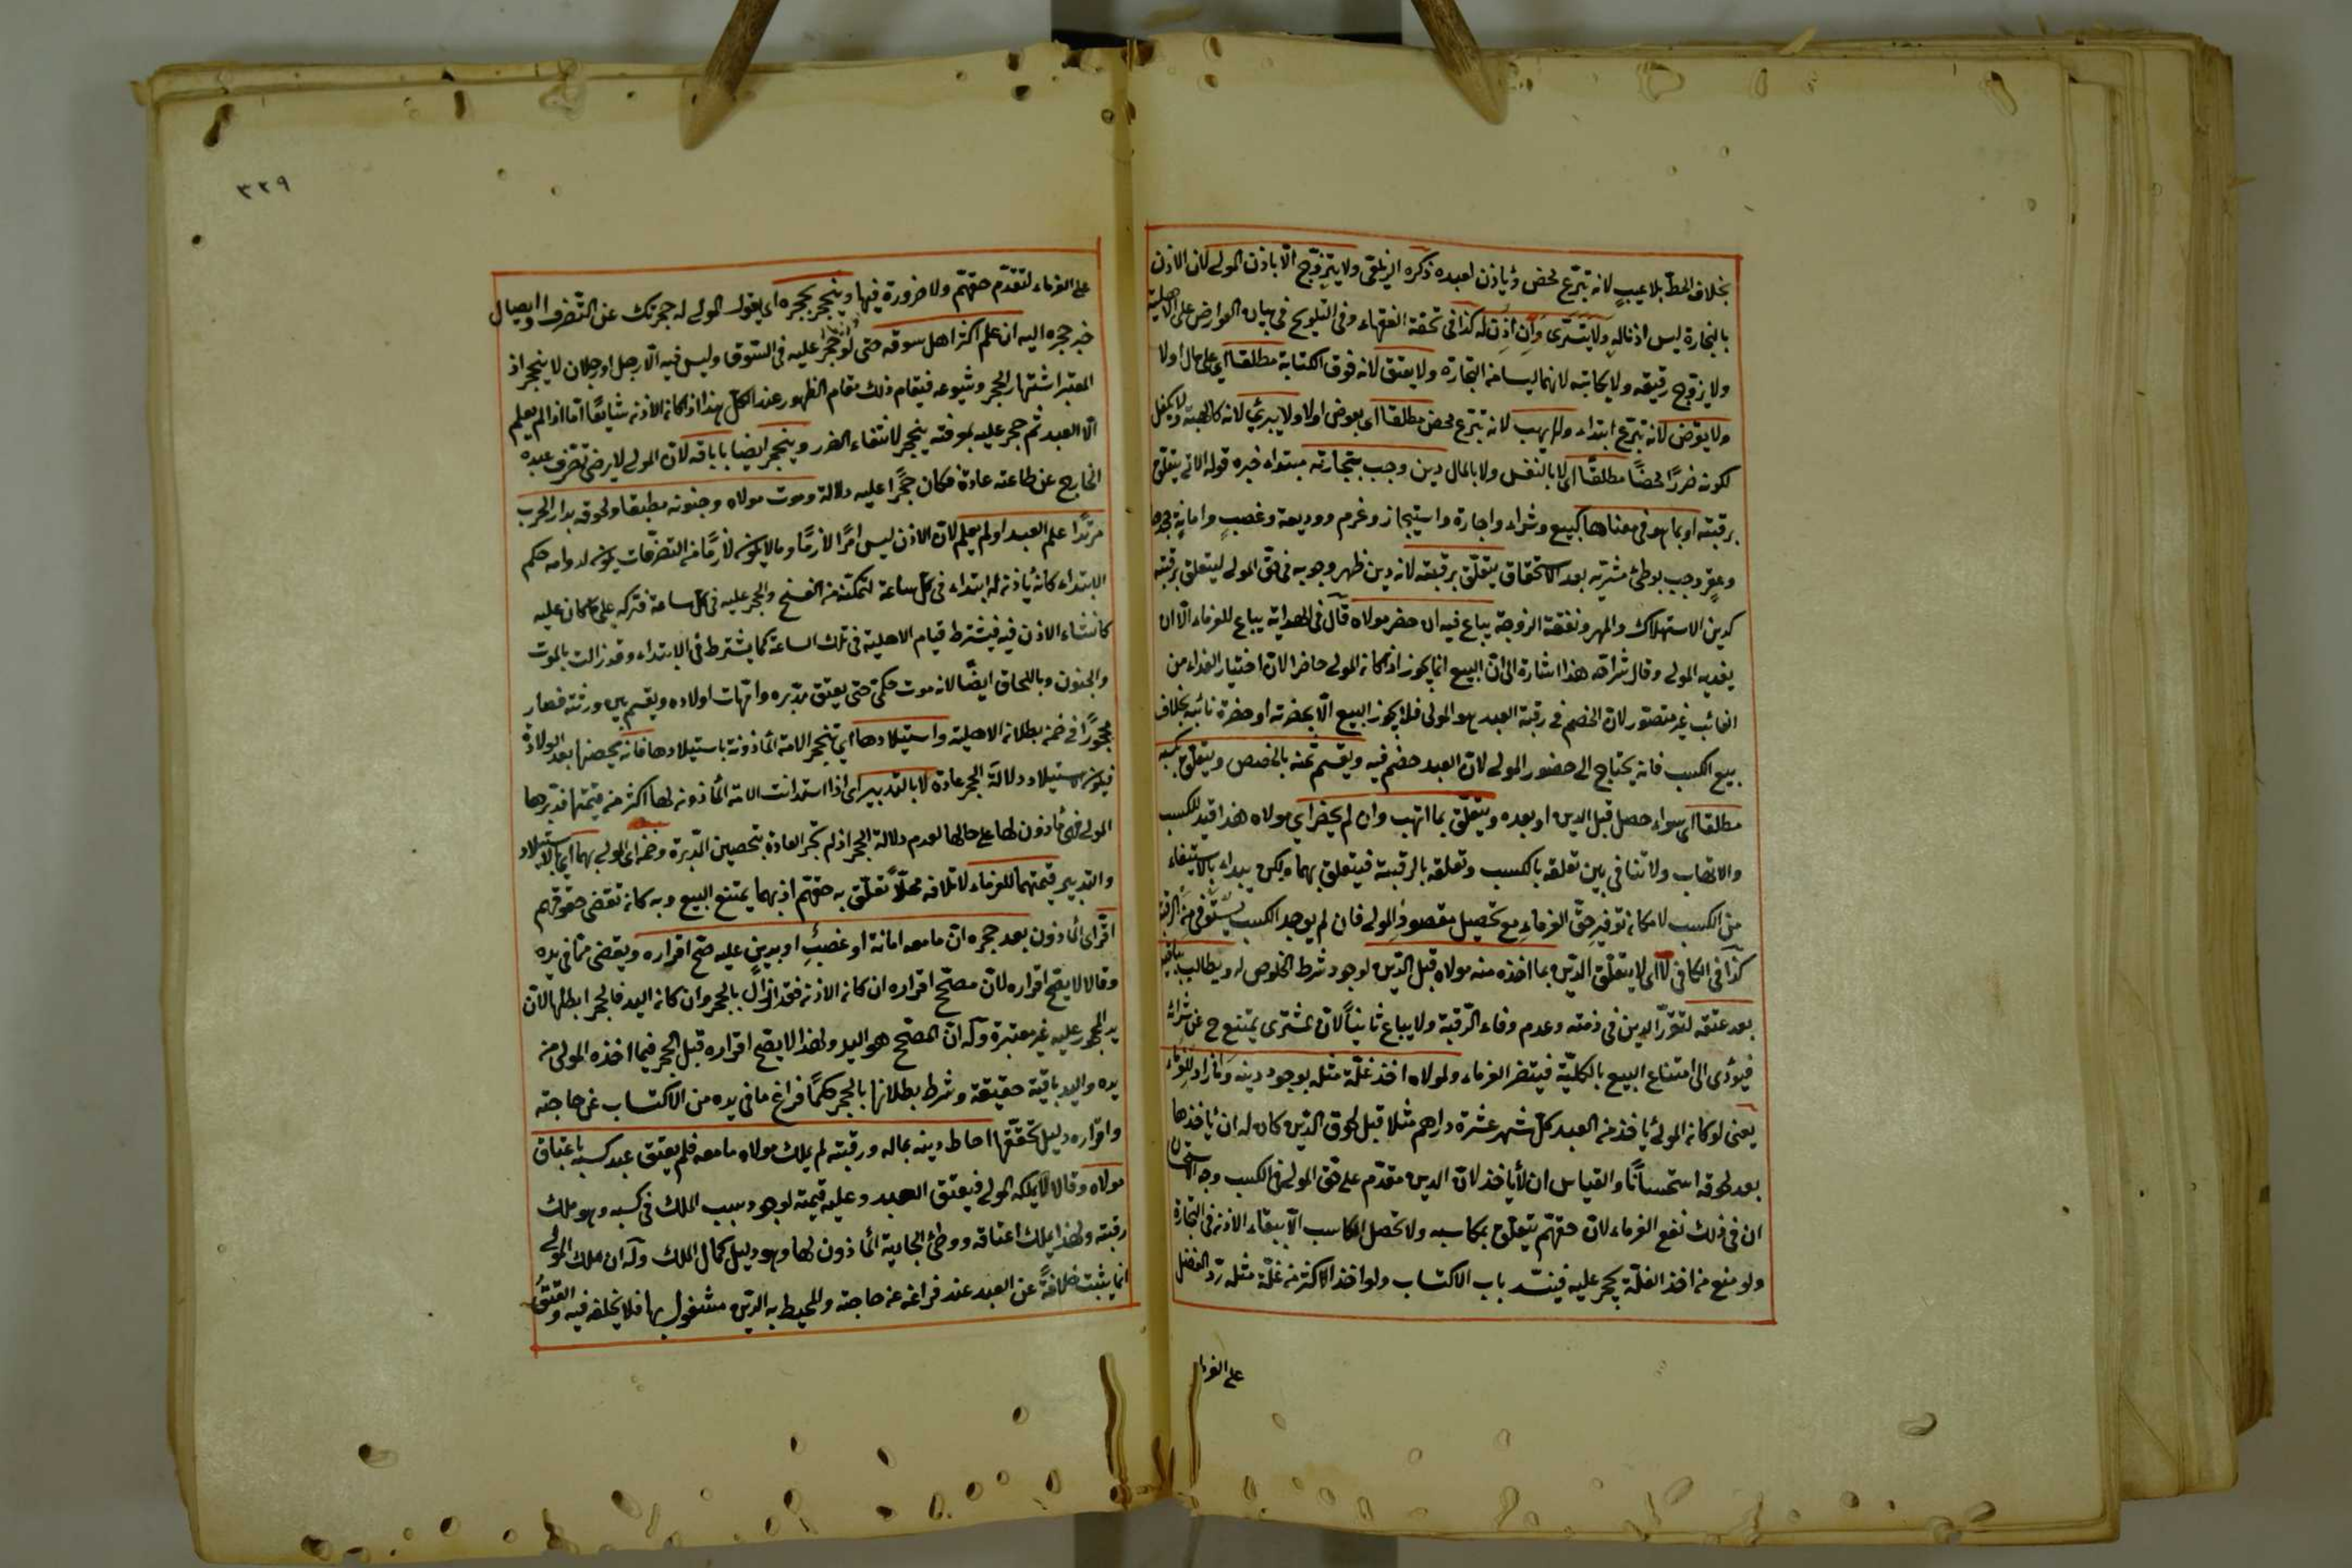 بخلاف الحط بلا عيب لانه تبرّع محض ويأذن لعبده ذكره الزيلعى ولا يتزوّج الّا باذن المولى لان الاذن
بالتجارة ليس اذنا له ولا يتسرّى وان اذن له كذا فى تحفة الفقهاء وفى التلويح فى بيان العوارض على الاهلية
ولا يزوّج رقيقه ولا يكاتبه لانهما ليسا من التجارة ولا يعتق لانه فوق الكتابة مطلقا اى على مال اولا
ولا يقرض لانه تبرّع ابتداء ولا يهب لانه تبرّع محض مطلقا اى بعوض اولا ولا يبرئ لانه كالهبة ولا يكفل
لكونه ضررًا محضًا مطلقًا اى لا بالنفس ولا بالمال دين وجب بتجارته مبتداء خبره قوله الاتى يتعلّق
برقبته او بما هو فى معناها كبيع وشراء واجارة واستيجار وغرم وديعة وغصب وامانة جحدها
وعقر وجب بوطئ مشريّه بعد الاستحقاق يتعلّق برقبته لانه دين ظهر وجوبه فى حقّ المولى ليتعلق برقبته
كدين الاستهلاك والمهر ونفقة الزوجة يباع فيه ان حضر مولاه قال فى الهداية يباع للغرماء الّا ان
يفديه المولى وقال شراحه هذا اشارة الى انّ البيع انما يجوز اذا كان المولى حاضرا لانّ اختيار الفداء من
الغائب غير متصوّر لان الخصم فى رقبة العبد هو المولى فلا يجوز البيع الّا بحضرته او حضرة نائبه بخلاف
بيع الكسب فانه يحتاج الى حضور المولى لان العبد خصم فيه ويقسم ثمنه بالحصص ويتعلّق بكسبه
مطلقا اى سواء حصل قبل الدين او بعده ويتعلّق بما اتّهب وان لم يحضر اى مولاه هذا قيد للكسب
والاتهاب ولا تنافى بين تعلقه بالكسب وتعلقه بالرقبة فيتعلق بهما ولكن يبداء بالاستيفاء
من الكسب لامكان توفير حقّ الغرماء مع تحصيل مقصود المولى فان لم يوجد الكسب يستوفى من الرقبة
كذا فى الكافى لا اى لا يتعلّق الدّين بما اخذه منه مولاه قبل الدّين لوجود شرط الخلوص له ويطالب بباقيه
بعد عتقه لتقرّر الدين فى ذمته وعدم وفاء الرّقبة ولا يباع ثانيًا لان المشترى يمتنع ح عن شرائه
فيؤدى الى امتناع البيع بالكليّة فيتضرر الغرماء ولمولاه اخذ غلّة مثله بوجود دينه وما زاد للغرماء
يعنى لو كان المولى يأخذ من العبد كلّ شهر عشرة دراهم مثلا قبل لحوق الدّين كان له ان يأخذها
بعد لحوقه استحسانًا والقياس ان لا يأخذ لانّ الدين مقدّم على حقّ المولى فى الكسب وجه الاستحسان
ان فى ذلك نفع الغرماء لانّ حقهم يتعلّق بمكاسبه ولا تحصل المكاسب الّا ببقاء الاذن فى التجارة
ولو منع من اخذ الغلّة يحجر عليه فينسد باب الاكتساب ولو اخذ الاكثر من غلّة مثله ردّ الفضل
على الغرما
٣٣٩
على الغرماء لتقدّم حقهم ولا ضرورة فيها وينحجر بحجره اى بقول المولى له حجرتك عن التّصرف او ايصال
خبر حجره اليه ان علم اكثر اهل سوقه حتى لو حجر عليه فى السّوق وليس فيه الّا رجل او رجلان لا ينحجر اذ
المعتبر اشتهار الحجر وشيوعه فيقام ذلك مقام الظهور عند الكلّ هذا اذا كان الاذن شايعًا اما اذا لم يعلم
الّا العبد ثم حجر عليه بمعرفته ينحجر لانتفاء الضرر وينحجر ايضا باباقه لانّ المولى لا يرضى تصرف عبده
الخارج عن طاعته عادة فكان حجرًا عليه دلالة وموت مولاه وجنونه مطبقا ولحوقه بدار الحرب
مرتدًا علم العبد او لم يعلم لانّ الاذن ليس امرًا لازمًا وما لا يكون لازمًا من التصرّفات يكون لدوامه حكم
الابتداء كانه يأذن له ابتداء فى كل ساعة لتمكنه من الفسخ والحجر عليه فى كل ساعة فتركه على ما كان عليه
كانشاء الاذن فيه فيشترط قيام الاهلية فى تلك الساعة كما يشترط فى الابتداء وقد زالت بالموت
والجنون وباللحاق ايضًا لانه موت حكمى حتى يعتق مدبّره وامّهات اولاده ويقسم بين ورثته فصار
محجورًا فى ضمن بطلان الاهلية واستيلادها اى تنحجر الامة المأذونة باستيلادها فانه يحصنها بعد الولادة
فيكون استيلاد دلالة الحجر عادة لا بالتدبير اى اذا استدانت الامة المأذونه لها اكثر من قيمتها فدبّرها
المولى فهى مأذون لها على حالها لعدم دلالة الحجر اذ لم تجر العادة بتحصين المدبّرة وضمن اى المولى بهما اى الاستيلاد
والتدبير قيمتهما للغرماء لاتلافه محلّا تعلّق به حقهم اذ بهما يمتنع البيع وبه كان تقضى حقوقهم
اقرّ اى المأذون بعد حجره انّ ما معه امانة او غصب او بدين عليه صحّ اقراره ويقضى ممّا فى يده
وقالا لا يصح اقراره لانّ مصحّح اقراره ان كان الاذن فقد زال بالحجر وان كان اليد فالحجر ابطلها لانّ
يد المحجور عليه غير معتبرة وله انّ المصحّح هو اليد ولهذا لا يصح اقراره قبل الحجر فيما اخذه المولى من
يده واليد باقية حقيقة وشرط بطلانها بالحجر حكمًا فراغ ما فى يده من الاكتساب عن حاجته
واقراره دليل تحقّقها احاط دينه بماله ورقبته لم يملك مولاه ما معه فلم يعتق عبد كسبه باعتاق
مولاه وقالا يملكه المولى فيعتق العبد وعليه قيمته لوجود سبب الملك فى كسبه وهو ملك
رقبته ولهذا يملك اعتاقه ووطئ الجارية المأذون لها وهو دليل كمال الملك وله ان ملك المولى
انما يثبت خلافةً عن العبد عند فراغه عن حاجته والمحيط به الدّين مشغول بها فلا يخلفه فيه والعتق